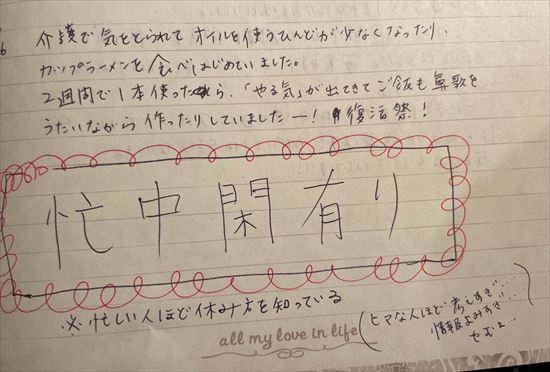 介護で気をとられて オイルを使うひんどが少なくなったり、
カップラーメンを食べはじめていました。
2週間で1本使ったら、「やる気」が出てきてご飯も鼻歌を
うたいながら 作ったりしていましたー! 復活祭!
忙中閑有り
※忙しい人ほど休み方を知っている
(ヒマな人ほど 考えすぎ...
情報よみすぎ...
all my love in life